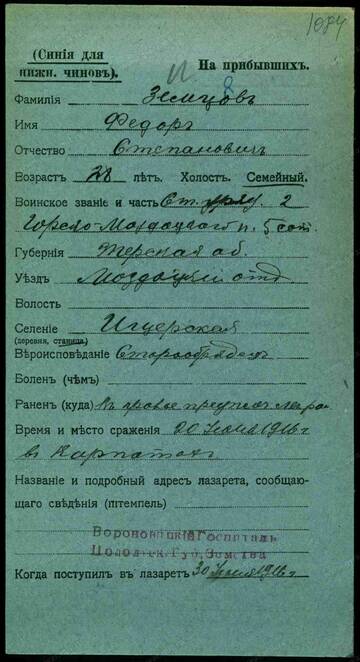 1084
(Синія для
нижн. чиновъ).
На прибывшихъ.
Фамилія Земцовъ
Имя Федоръ
Отчество Степановичъ
Возрастъ 28 лѣтъ. Холост. Семейный.
Воинское званіе и часть Ст. 2
Горско-Моздокскаго п. 5 сот.
Губернія Терская об.
Уѣздъ Моздокскій отд.
Волость
Селеніе Ищерская
(деревня, станица).
Вѣроисповѣданіе Старообрядецъ
Боленъ (чѣмъ)
Раненъ (куда) въ правое предплечье
Время и мѣсто сраженія 20 1916 г
въ Карпатахъ
Названіе и подробный адресъ лазарета, сообщаю-
щаго свѣдѣнія (штемпель)
Вороновицкій Госпиталь
Подольск. Губ. Земства
Когда поступилъ въ лазаретъ 30 1916 г